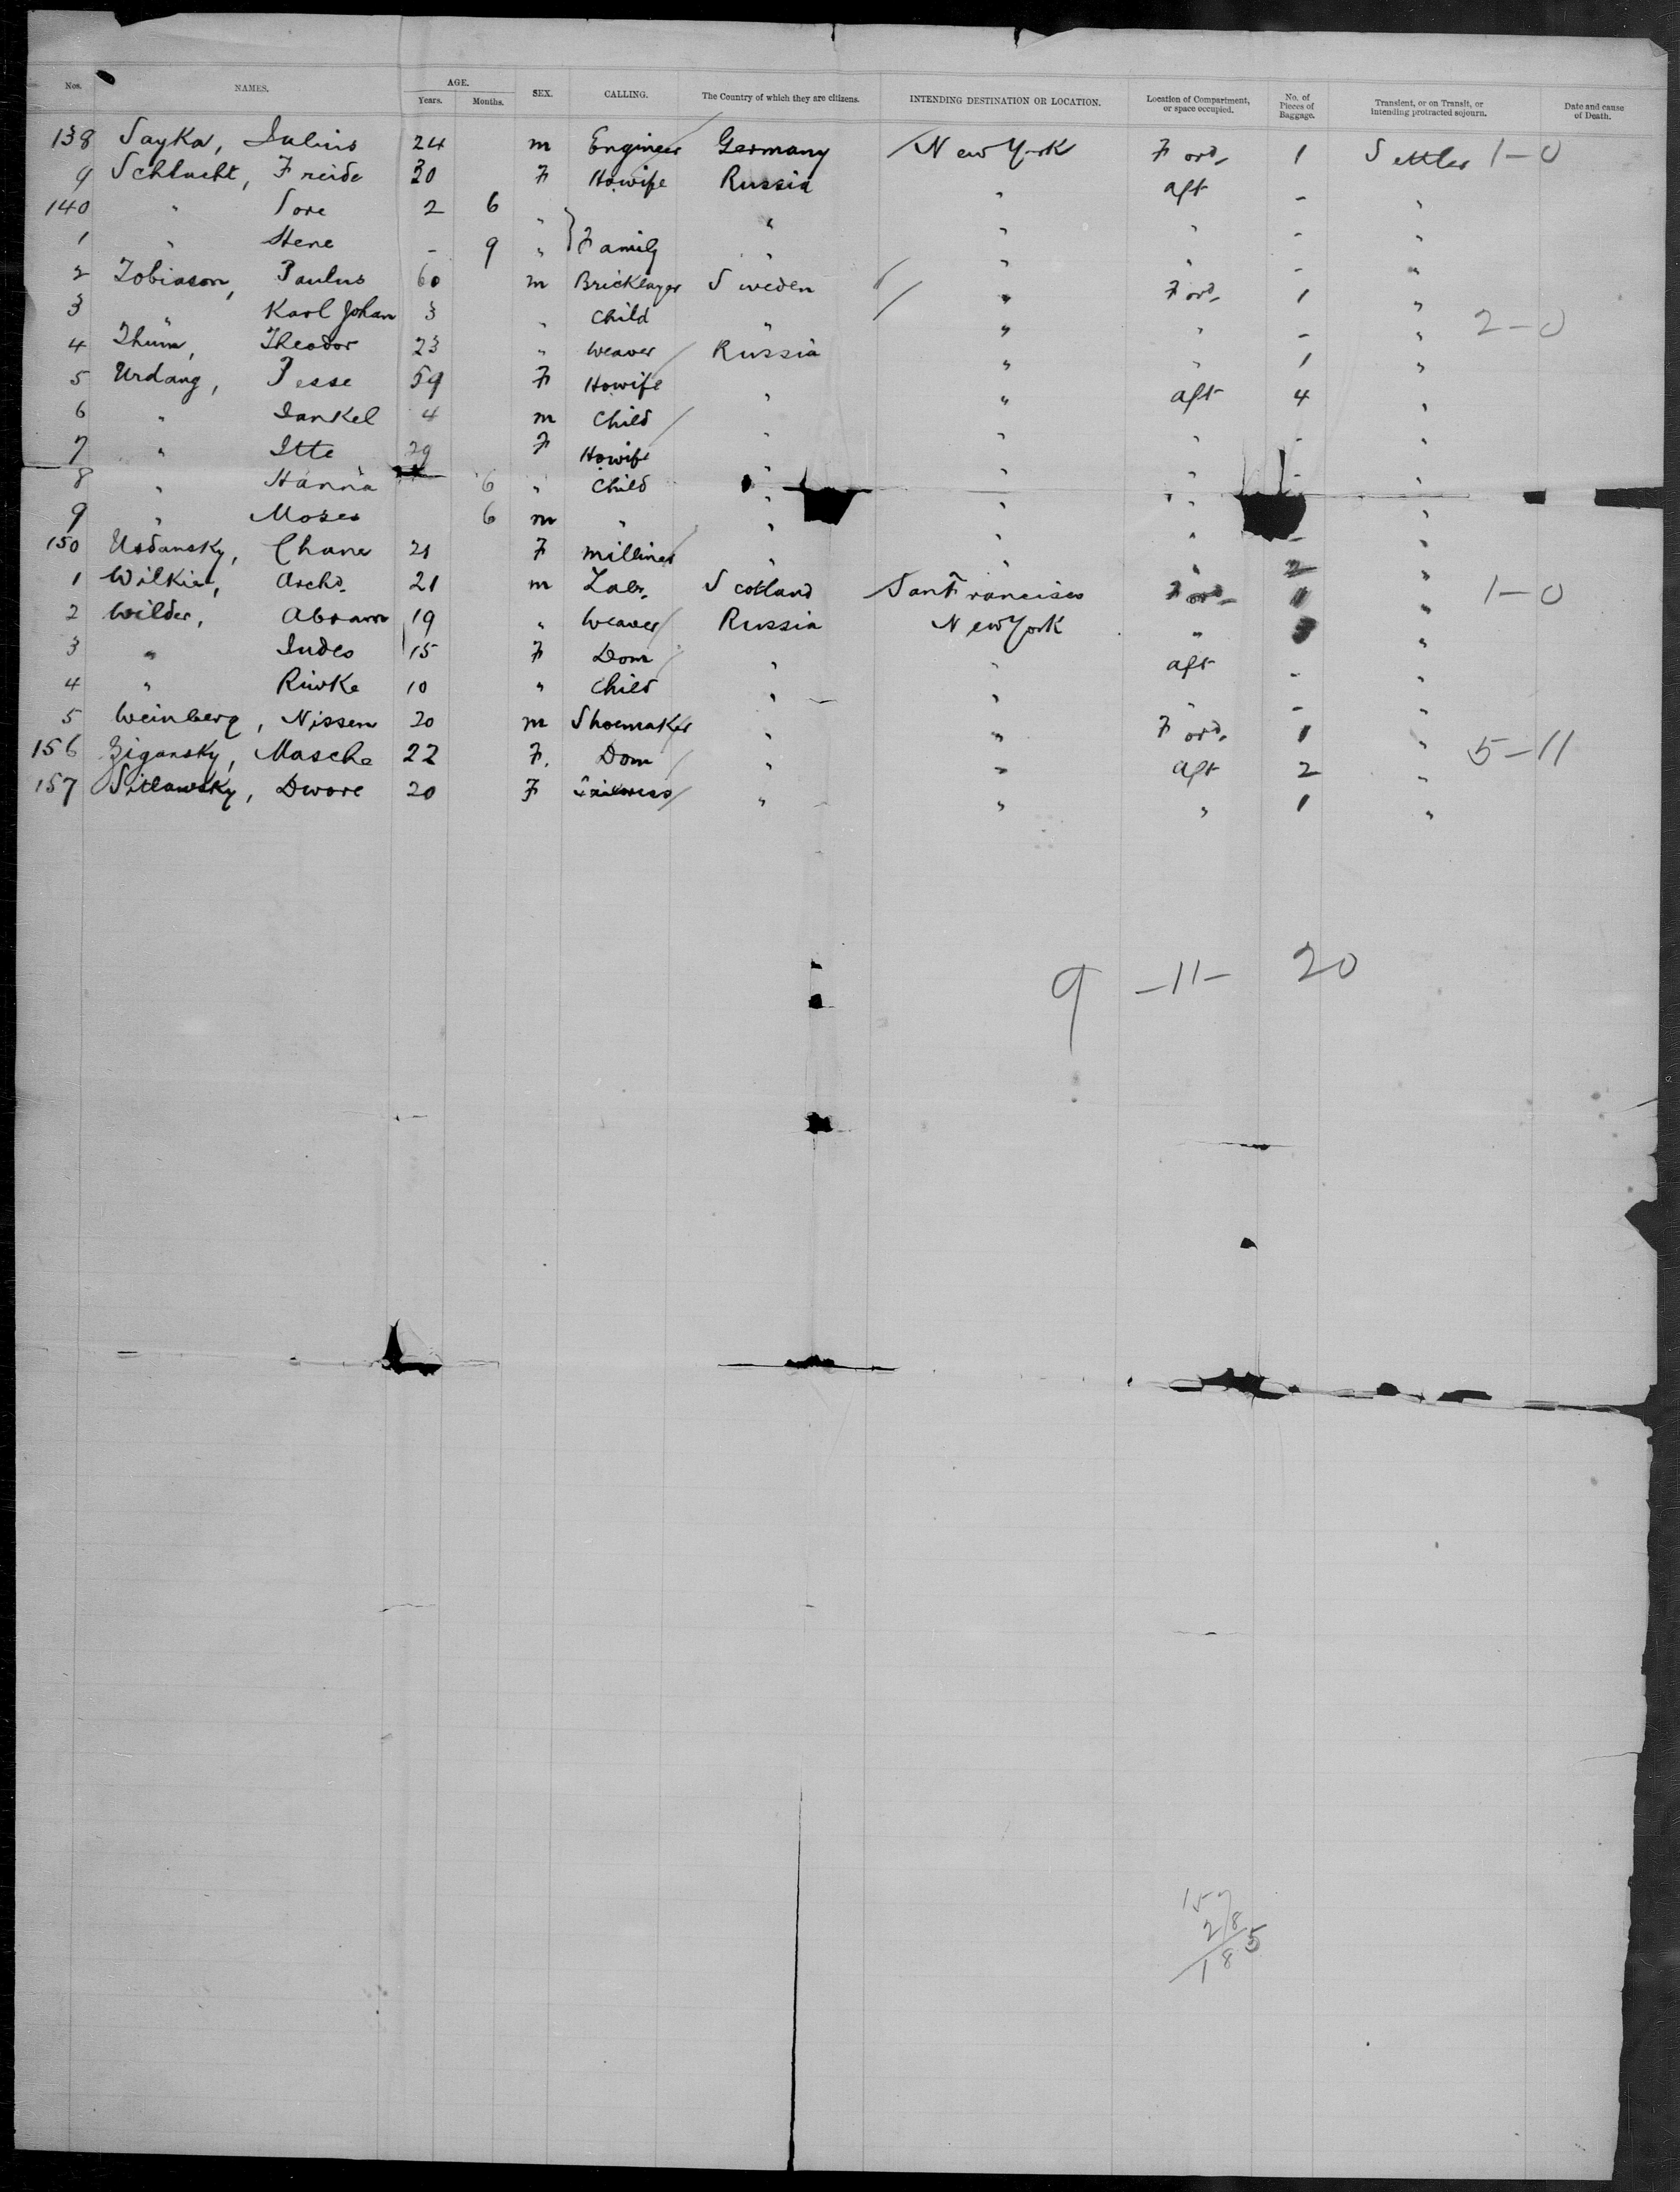 Nos. NAMES. AGE. Years. Months. SEX. CALLING. The Country of which they are citizens. INTENDING DESTINATION OR LOCATION. Location of Compartment, or space occupied. No. of Pieces of Baggage. Transient, or on Transit, or intending protracted sojourn. Date and cause of Death.
138 Sayka, Julius 24 m Engineer Germany New York Ford. 1 Settler 1-0
9 Schlucht, Freide 30 F Howife Russia " aft - "
140 " Sore 2 6 " " " " - "
1 " Stene - 9 " } Family " " " - "
2 Tobiason, Paulus 60 m Bricklayer Sweden " Ford. 1 "
3 " Karl Johan 3 " Child " " " - " 2-0
4 Thum, Theodor 23 " Weaver Russia " " 1 "
5 Urdang, Pesse 59 F Howife " " aft 4 "
6 " Jankel 4 m Child " " " - "
7 " Itte 29 F Howife " " " - "
8 " Hanna 6 " Child " " " "
9 " Moses 6 m " " " " - "
150 Usdansky, Chane 21 F milliner " " " 2 "
1 Wilkie, Archd. 21 m Labr. Scotland San Francisco Ford. 1 " 1-0
2 Wilder, Abram 19 " Weaver Russia New York " "
3 " Judes 15 F Dom " " aft - "
4 " Riwke 10 " Child " " " - "
5 Weinberg, Nissen 20 m Shoemaker " " Ford. 1 "
156 Zigansky, Masche 22 F. Dom " " aft 2 " 5-11
157 Sitlawsky, Dwore 20 F Tailoress " " " 1 "
9 -11- 20
157
28
185